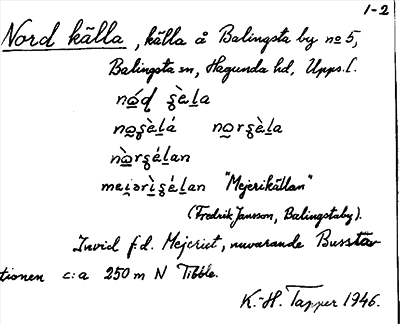 1-2
Nord källa, källa å Balingsta by no 5,
Balingsta sn, Hagunda hd, Upps. l.
no̲ɖ ʂɛ̀l̲a
no̲ʂɛ̀l̲á no̲rʂɛ̀l̲a
nò̲rʂɛ́l̲an
meiəri̲ʂɛ́l̲an "Mejerikällan"
(Fredrik Jansson, Balingstaby).
Invid f.d. Mejeriet, nuvarande Bussta
tionen c:a 250 m N Tibble.
K.-H. Tapper 1946.